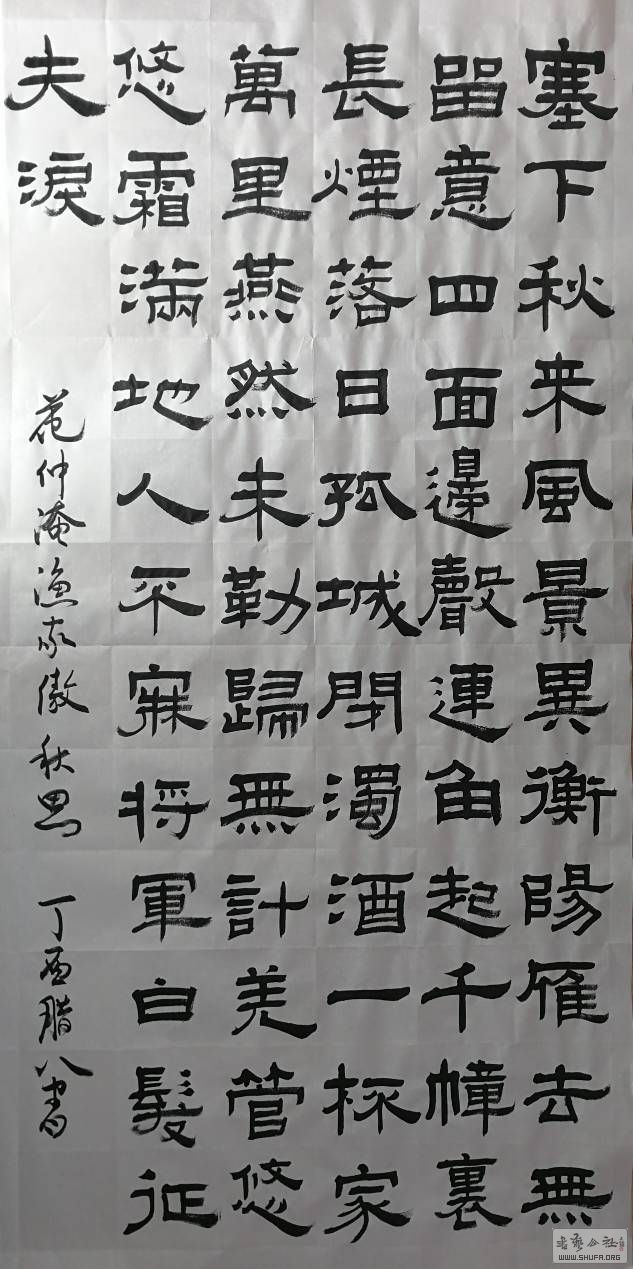 塞下秋来風景異衡陽雁去無
留意四面邊聲連角起千幛裏
長煙落日孤城閉濁酒一杯家
萬里燕然未勒歸無計羌管悠
悠霜滿地人不寐将軍白髮征
夫淚
范仲淹漁家傲秋思 丁酉腊八書
WWW.SHUFA.ORG